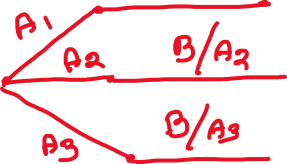 A1
A2 B/A2
A3 B/A3